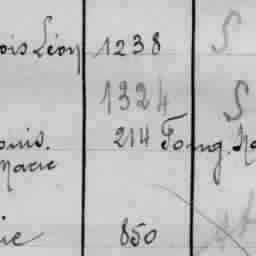 ois Léon 1238 S
1324 S
ouis. 214 Fomg.
Marie
ie 850